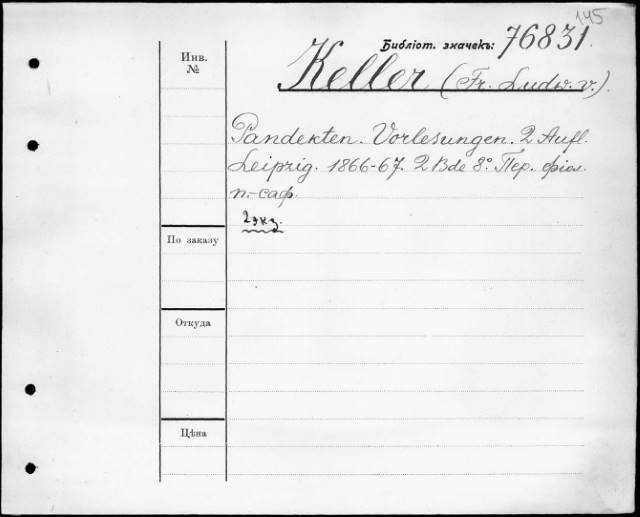 145
Библіот. значекъ: 76831.
Инв.
№
Keller (Fr. Ludw. v.).
Pandekten. Vorlesungen. 2 Aufl.
Leipzig. 1866-67. 2 Bde 8° Пер. фіол.
п.-саф.
2 экз.
По заказу
Откуда
Цѣна